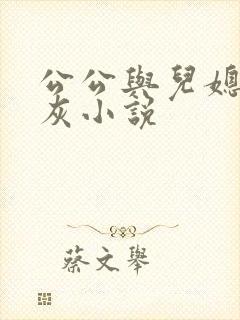 公公與兒媳
灰小說
蔡文舉